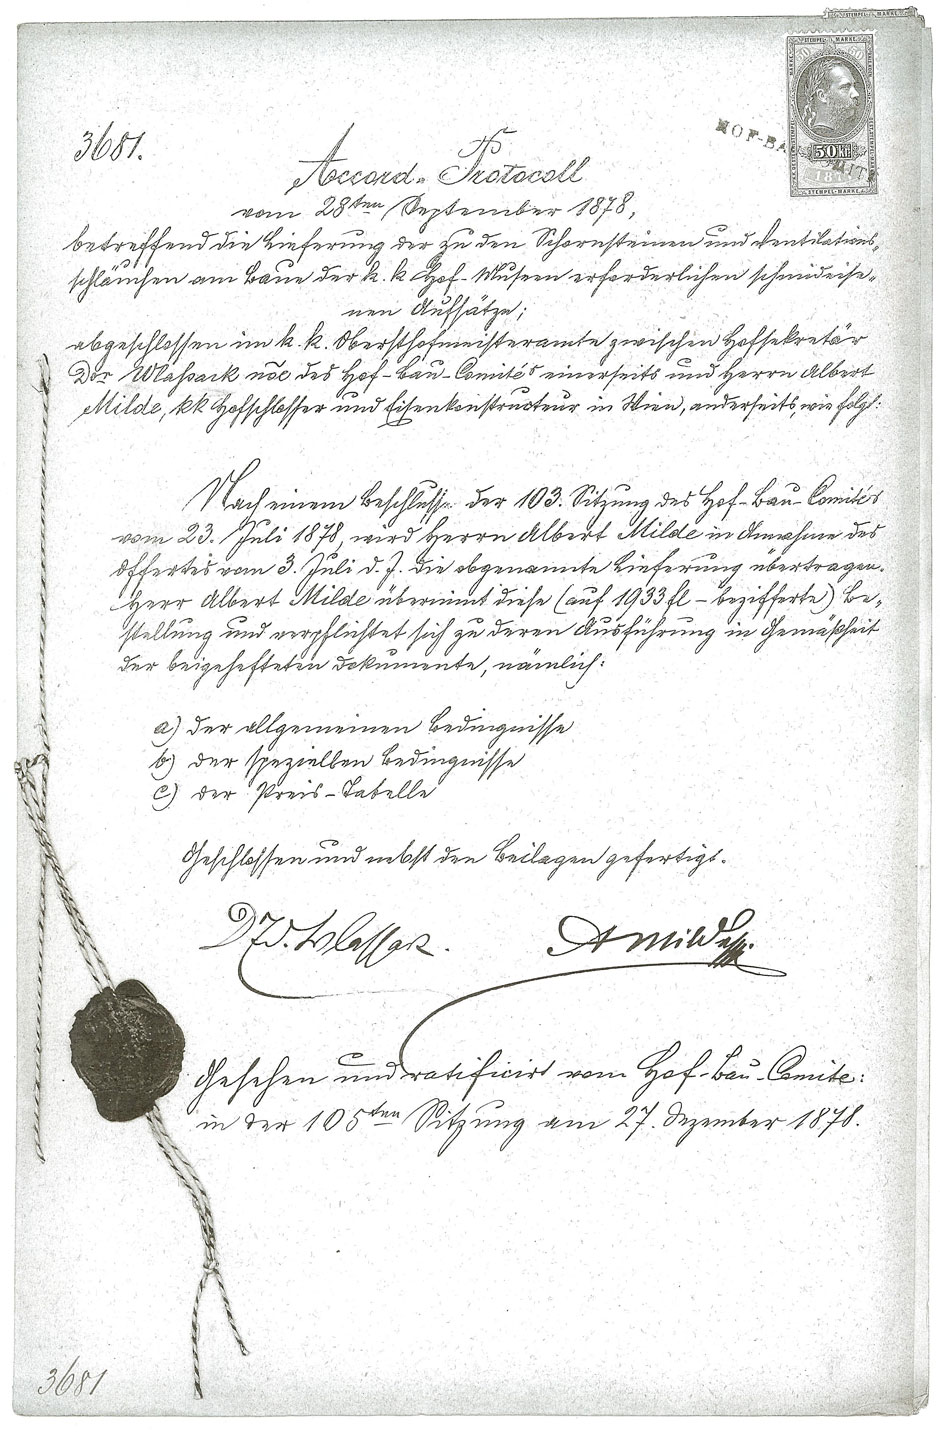 STEMPEL MARKE
STEMPEL MARKE
50 50
HOF-BA
50 Kr
STEMPEL-MARKE
3681.
Accord-Protocoll
vom 28ten September 1878,
betreffend die Lieferung der zu den Schornsteinen und Ventilations-
schläuchen am Baue der k. k Hof-Museen erforderlichen schmideise-
nen Aufsätze;
abgeschlossen im k. k. Obersthofmeisteramte zwischen Hofsekretär
Dor Wlassack nōe des Hof-Bau-Comités einerseits und Herrn Albert
Milde, kk Hofschlosser und Eisenkonstructeur in Wien, anderseits, wie folgt:
Nach einem Beschlusse der 103. Sitzung des Hof-Bau-Comités
vom 23. Juli 1878, wird Herrn Albert Milde in Annahme des
Offertes vom 3. Juli d. J. die obgenannte Lieferung übertragen.
Herr Albert Milde übernimt diese (auf 1933 fl – bezifferte) Be-
stellung und verpflichtet sich zu deren Ausführung in Gemäßheit
der beigehefteten Dokumente, nämlich:
a) der allgemeinen Bedingnisse
b) der speziellen Bedingnisse
c) der Preis-Tabelle
Geschlossen und nebst den Beilagen gefertigt.
Wlassak. A Milde
Gesehen und ratificirt vom Hof-Bau-Comite:
in der 105ten Sitzung am 27. Dezember 1878.
3681